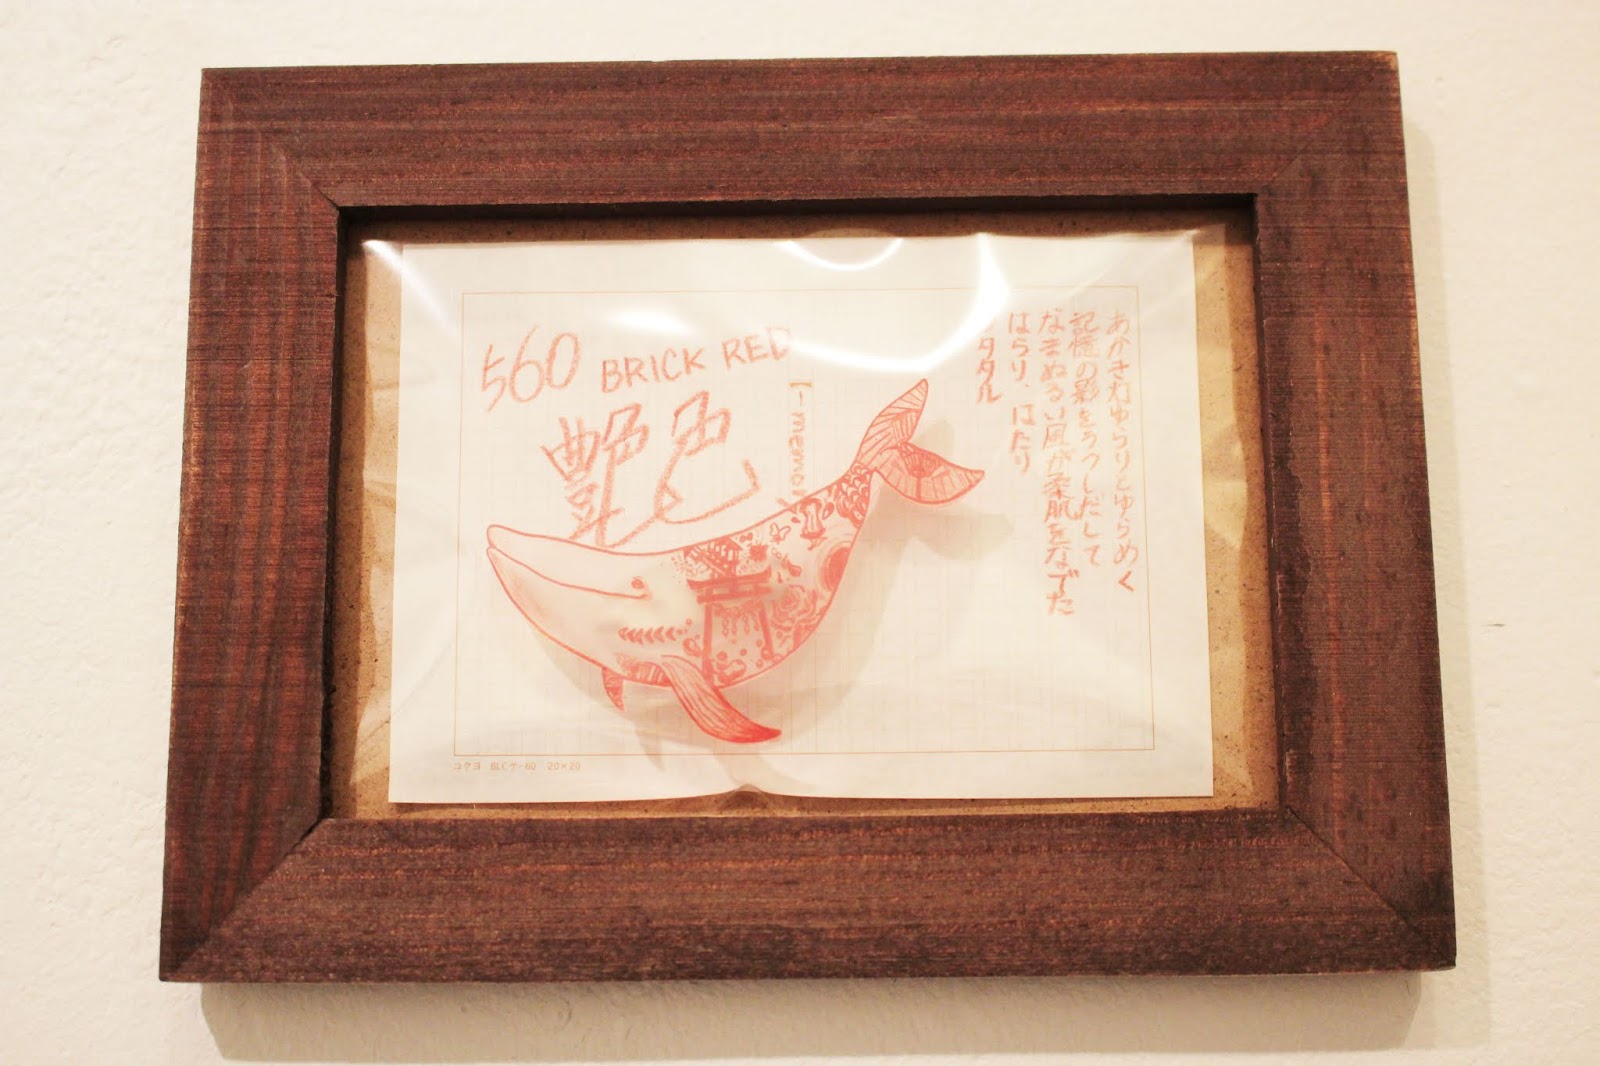 560 BRICK RED
艶色
【- memor
あかき灯ゆらりとゆらめく
記憶の影をうつしだして
なまぬるい風が柔肌をなでた
はらり、はたり
コクヨ ケ-60 20×20